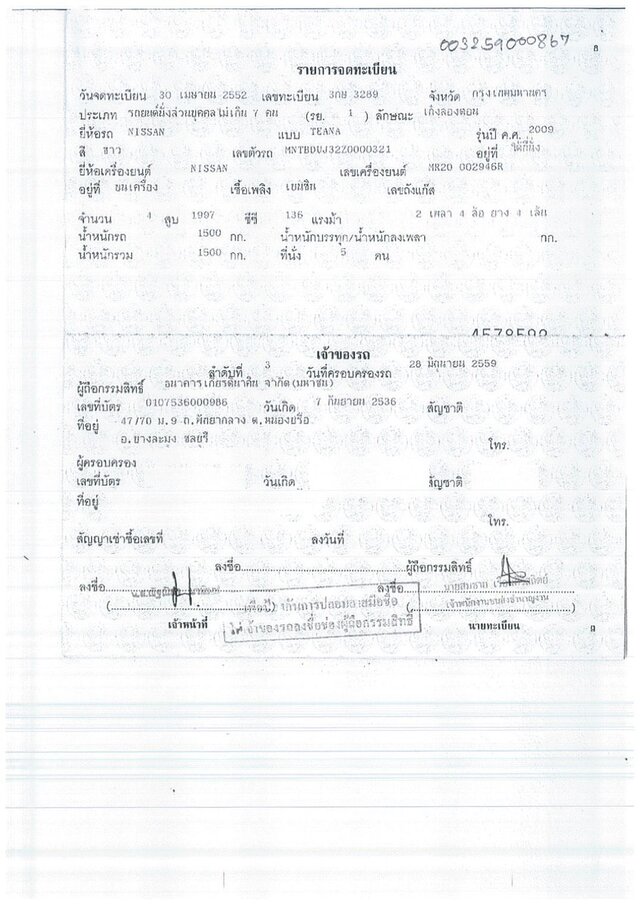 003259000867
รายการจดทะเบียน
วันจดทะเบียน 30 เมษายน 2552 เลขทะเบียน 3กษ 3289 จังหวัด กรุงเทพมหานคร
ประเภท รถยนต์นั่งส่วนบุคคลไม่เกิน 7 คน (รย. 1 ) ลักษณะ เก๋งสองตอน
ยี่ห้อรถ NISSAN แบบ TEANA รุ่นปี ค.ศ. 2009
สี ขาว เลขตัวรถ MNTBDUJ32Z0000321 อยู่ที่ ใต้ที่นั่ง
ยี่ห้อเครื่องยนต์ NISSAN เลขเครื่องยนต์ MR20 002946R
อยู่ที่ บนเครื่อง เชื้อเพลิง เบนซิน เลขถังแก๊ส
จำนวน 4 สูบ 1997 ซีซี 136 แรงม้า 2 เพลา 4 ล้อ ยาง 4 เส้น
น้ำหนักรถ 1500 กก. น้ำหนักบรรทุก/น้ำหนักลงเพลา กก.
น้ำหนักรวม 1500 กก. ที่นั่ง 5 คน
เจ้าของรถ
ลำดับที่ 3 วันที่ครอบครองรถ 28 มิถุนายน 2559
ผู้ถือกรรมสิทธิ์ ธนาคารเกียรตินาคิน จำกัด (มหาชน)
เลขที่บัตร 0107536000986 วันเกิด 7 กันยายน 2536 สัญชาติ
ที่อยู่ 47/70 ม.9 ถ.พัทยากลาง ต.หนองปรือ
อ.บางละมุง ชลบุรี
โทร.
ผู้ครอบครอง
เลขที่บัตร วันเกิด สัญชาติ
ที่อยู่
โทร.
สัญญาเช่าซื้อเลขที่ ลงวันที่
ลงชื่อ ผู้ถือกรรมสิทธิ์
ลงชื่อ ลงชื่อ
เพื่อป้องกันการปลอมลายมือชื่อ
ให้เจ้าของรถลงชื่อช่องผู้ถือกรรมสิทธิ์
เจ้าพนักงานขนส่งชำนาญงาน
เจ้าหน้าที่ นายทะเบียน